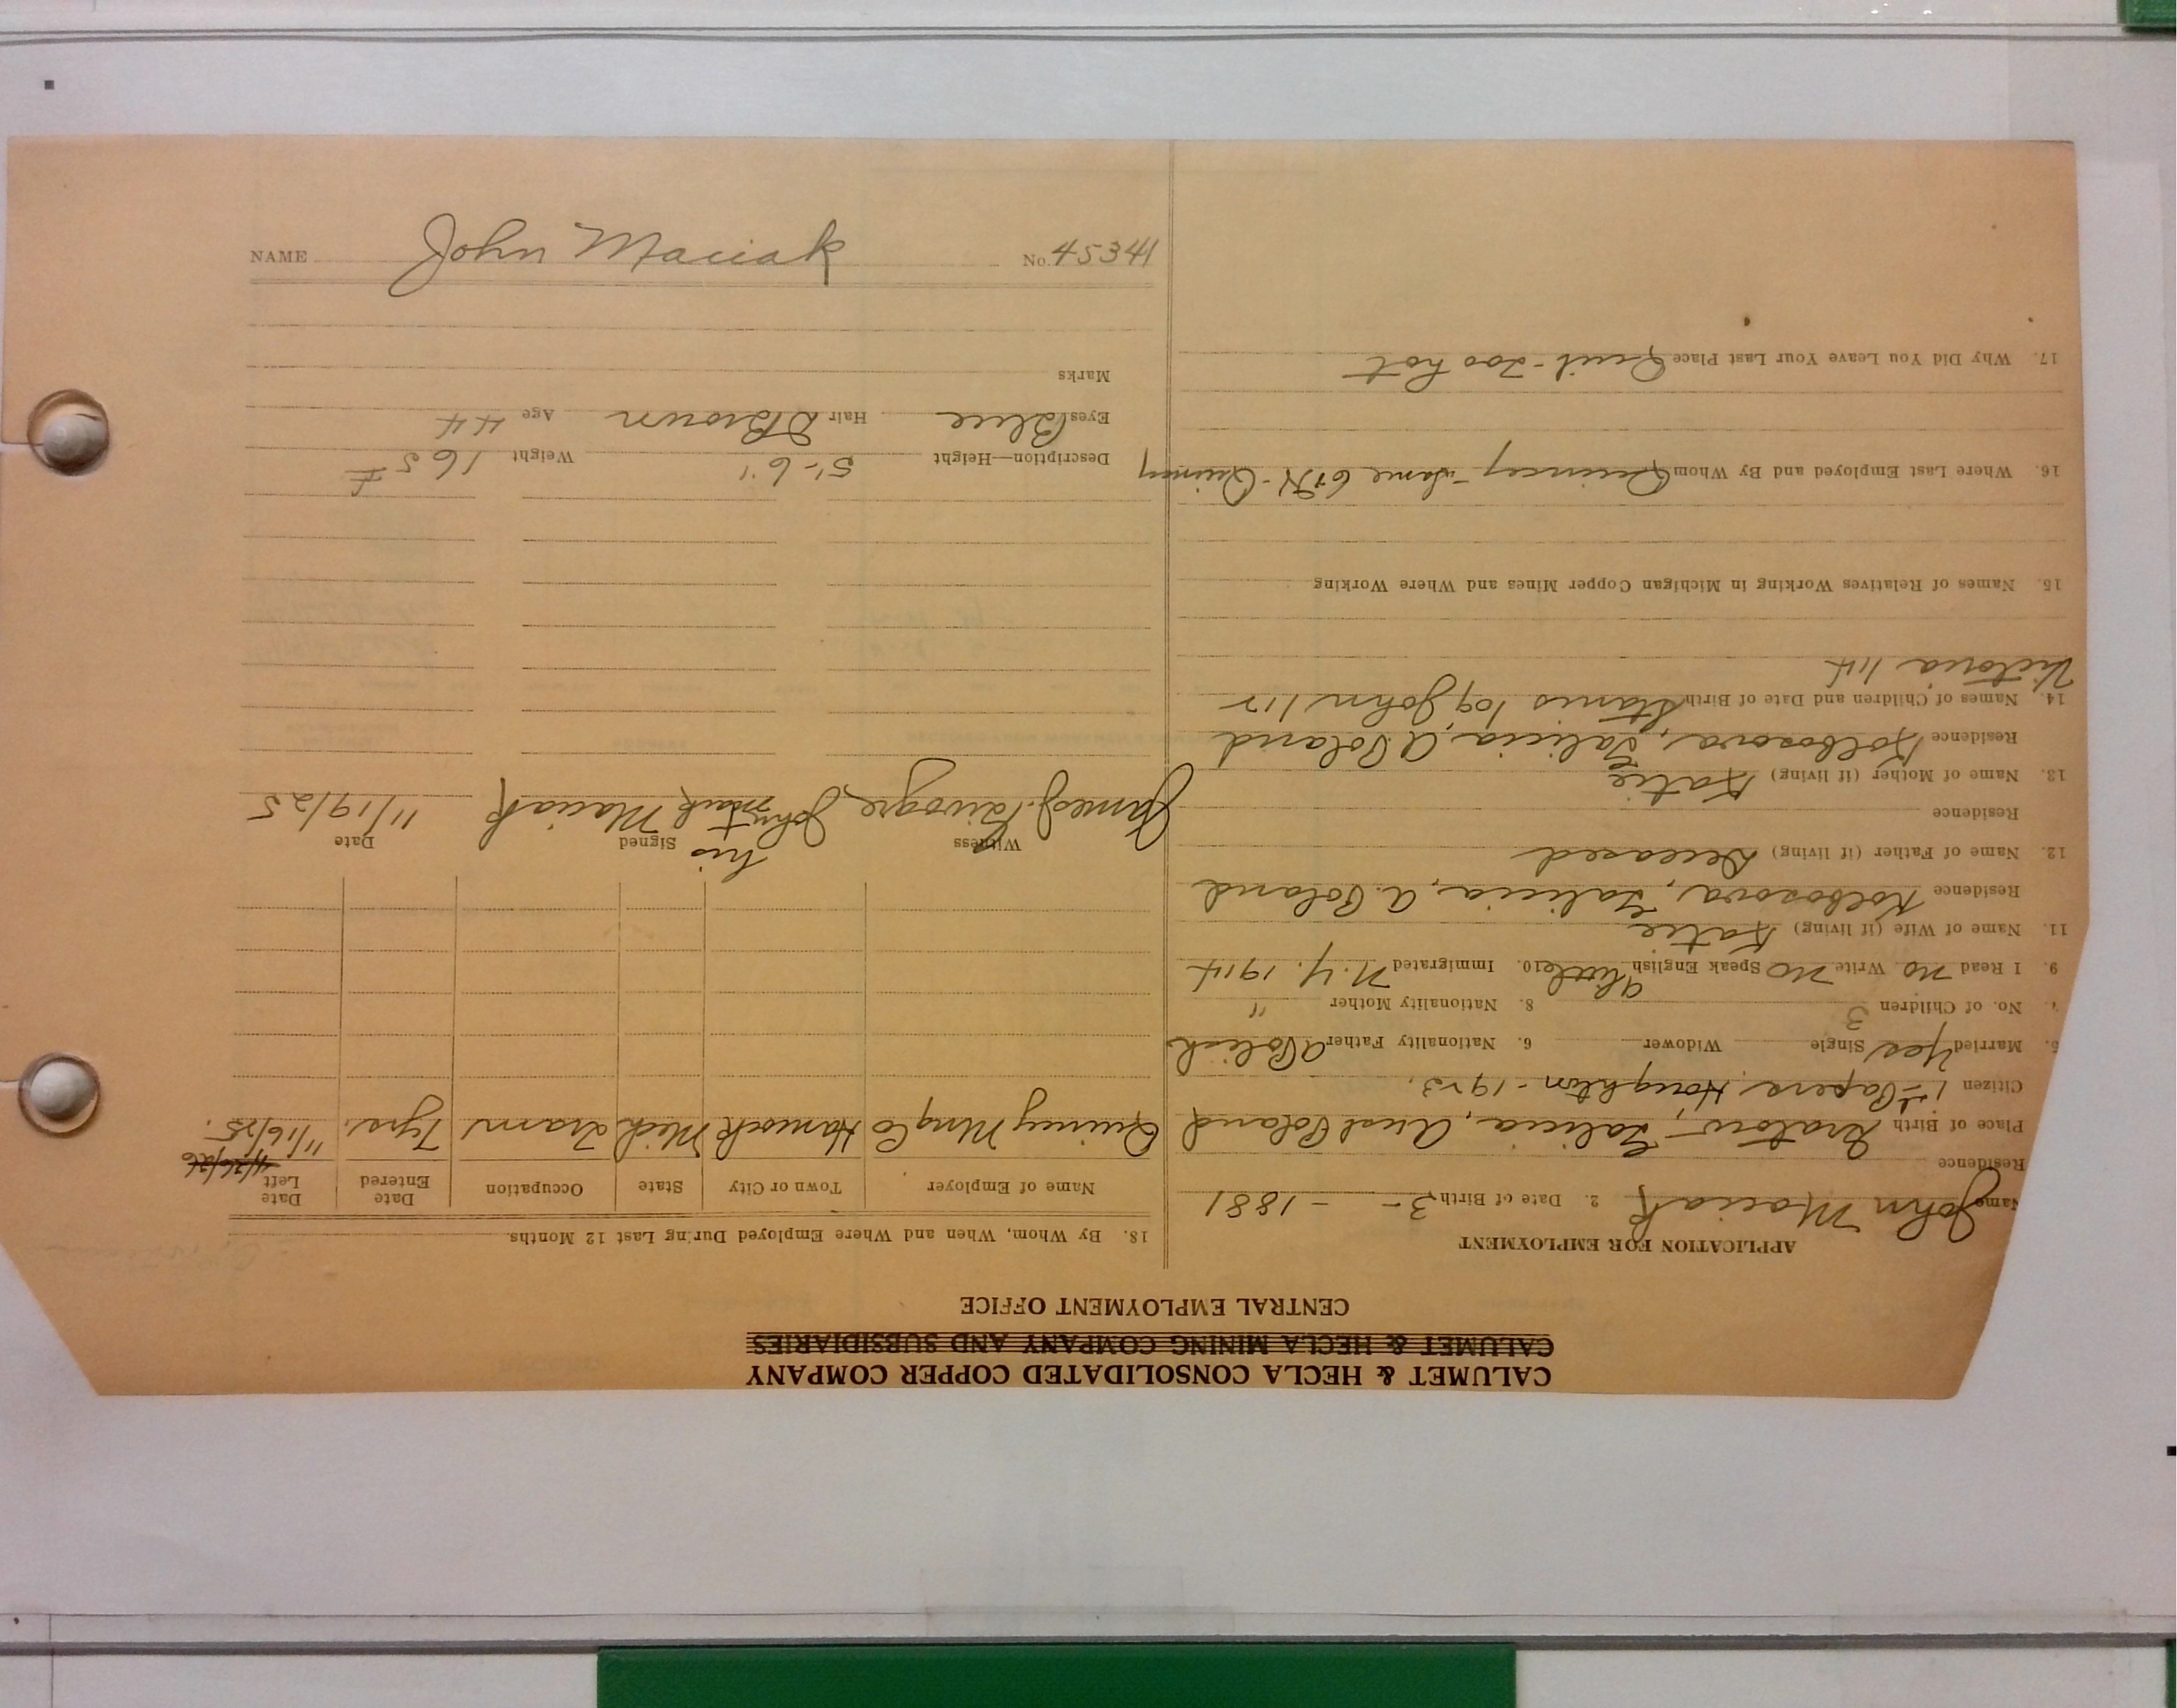 CALUMET & HECLA CONSOLIDATED COPPER COMPANY
CALUMET & HECLA MINING COMPANY AND SUBSIDIARIES
CENTRAL EMPLOYMENT OFFICE
APPLICATION FOR EMPLOYMENT
Name John Maciak 2. Date of Birth 3 - - 1881
Residence
Place of Birth Galicia, Aust Poland
Citizen 1st Papers, Houghton - 1923.
5. Married Yes Single Widower 6. Nationality Father A Polish
7. No. of Children 3 8. Nationality Mother "
9. I Read no Write no Speak English Little 10. Immigrated N.Y. 1914
11. Name of Wife (if living) Katie
Residence Kolbosova, Galicia, A. Poland
12. Name of Father (if living) Deceased
Residence
13. Name of Mother (if living) Katie
Residence Kolbosova, Galicia, A. Poland
14. Names of Children and Date of Birth Stanis 109, John 112
Victoria 114
15. Names of Relatives Working in Michigan Copper Mines and Where Working
16. Where Last Employed and By Whom Quincy - same 6 - Quincy
17. Why Did You Leave Your Last Place Quit - too hot
18. By Whom, When and Where Employed During Last 12 Months
Name of Employer Town or City State Occupation Date Entered Date Left
4/26/26
Quincy Mng Co Hancock Mich Tram 7yrs. 11/16/25.
Witness Signed Date
his
James J. John + Maciak 11/19/25
mark
Description—Height 5'-6" Weight 165 #
Eyes Blue Hair D Brown Age 44
Marks
NAME John Maciak No. 45341